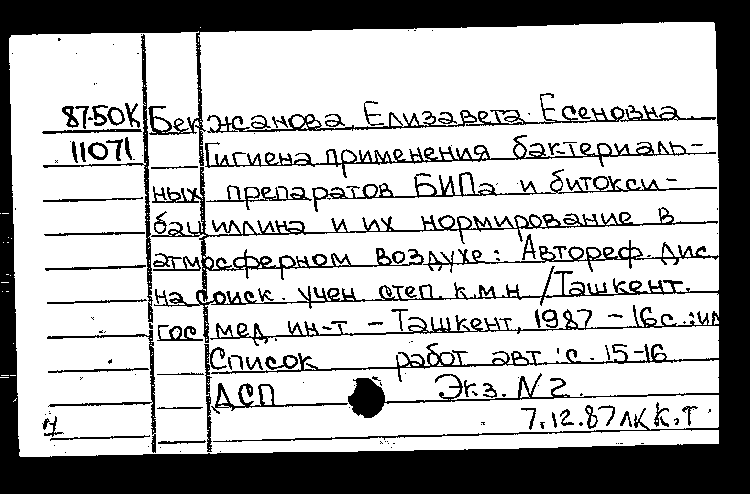 87-50К Бекжанова Елизавета Есеновна.
11071 Гигиена применения бактериаль-
ных препаратов БИПа и битокси-
бациллина и их нормирование в
атмосферном воздухе: Автореф. дис.
на соиск. учен. степ. к.м.н /Ташкент.
гос мед. ин-т. - Ташкент, 1987 - 16с.:ил
Список работ авт.: с. 15-16
ДСП Экз. N 2.
7.12.87 ЛКК.Т